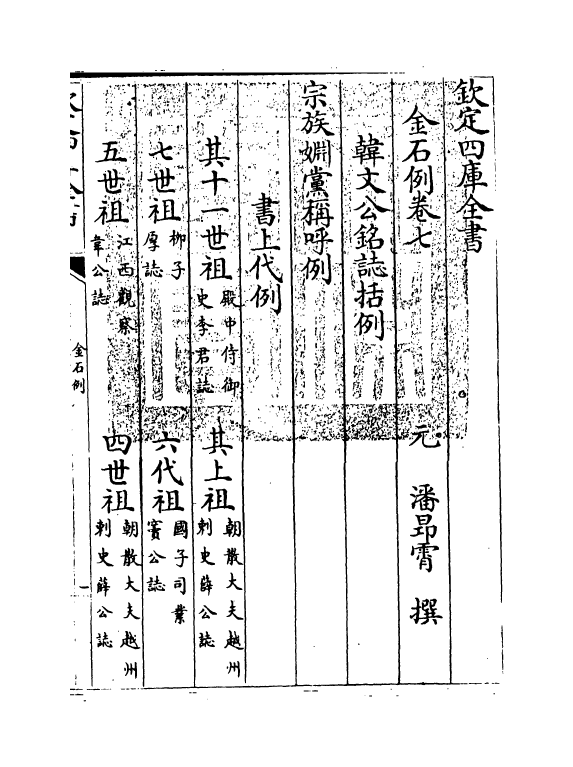 欽定四庫全書
金石例卷七
元 潘昂霄 撰
韓文公銘誌括例
宗族姻黨稱呼例
書上代例
其十一世祖 殿中侍御史李君誌 其上祖 朝散大夫越州刺史薛公誌
七世祖 栁子厚誌 六代祖 國子司業竇公誌
五世祖 江西觀察韋公誌 四世祖 朝散大夫越州刺史薛公誌
金石例
一